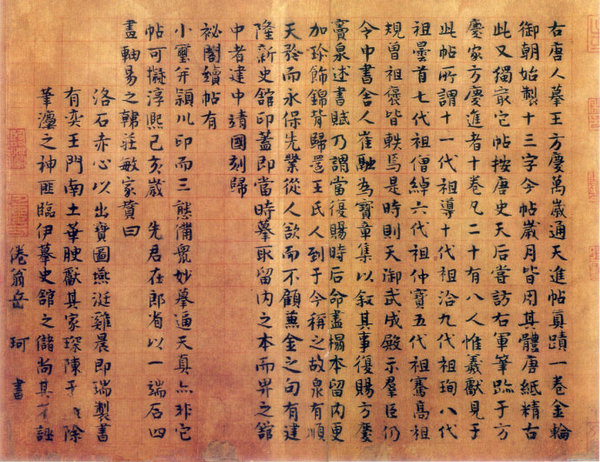 右唐人摹王方慶萬歲通天進帖真蹟一卷金輪
御朝始製十三字今帖歲月皆用其體唐紙精古
此又獨冣它帖按唐史天后嘗訪右軍筆蹟于方
慶家方慶進者十卷凡二十有八人惟羲獻見于
此帖所謂十一代祖導十代祖洽九代祖珣八代
祖曇首七代祖僧綽六代祖仲寶五代祖騫高祖
規曾祖褒皆軼焉是時則天御武成殿示羣臣仍
令中書舍人崔融為寶章集以叙其事復賜方慶
竇泉述書賦乃謂當復賜時后命盡榻本留內更
加珍飾錦背歸還王氏人到于今稱之故泉有順
天矜而永保先業從人欲而不顧兼金之句有建
隆新史舘印蓋即當時摹取留內之本而畀之舘
中者建中靖國刻歸
祕閣續帖有
小璽并潁川印而三態備眾妙摹逼天真亦非它
帖可擬淳熙己亥歲 先君在郎省以一端石四
盡軸易之韓莊敏家贊曰
洛石赤心以出寶圖燕涎雞晨即瑞製書
有奕王門南土筆腴獻其家琛陳于 除
筆瀍之神匪臨伊摹史舘之儲尚其不誣
倦翁岳珂書